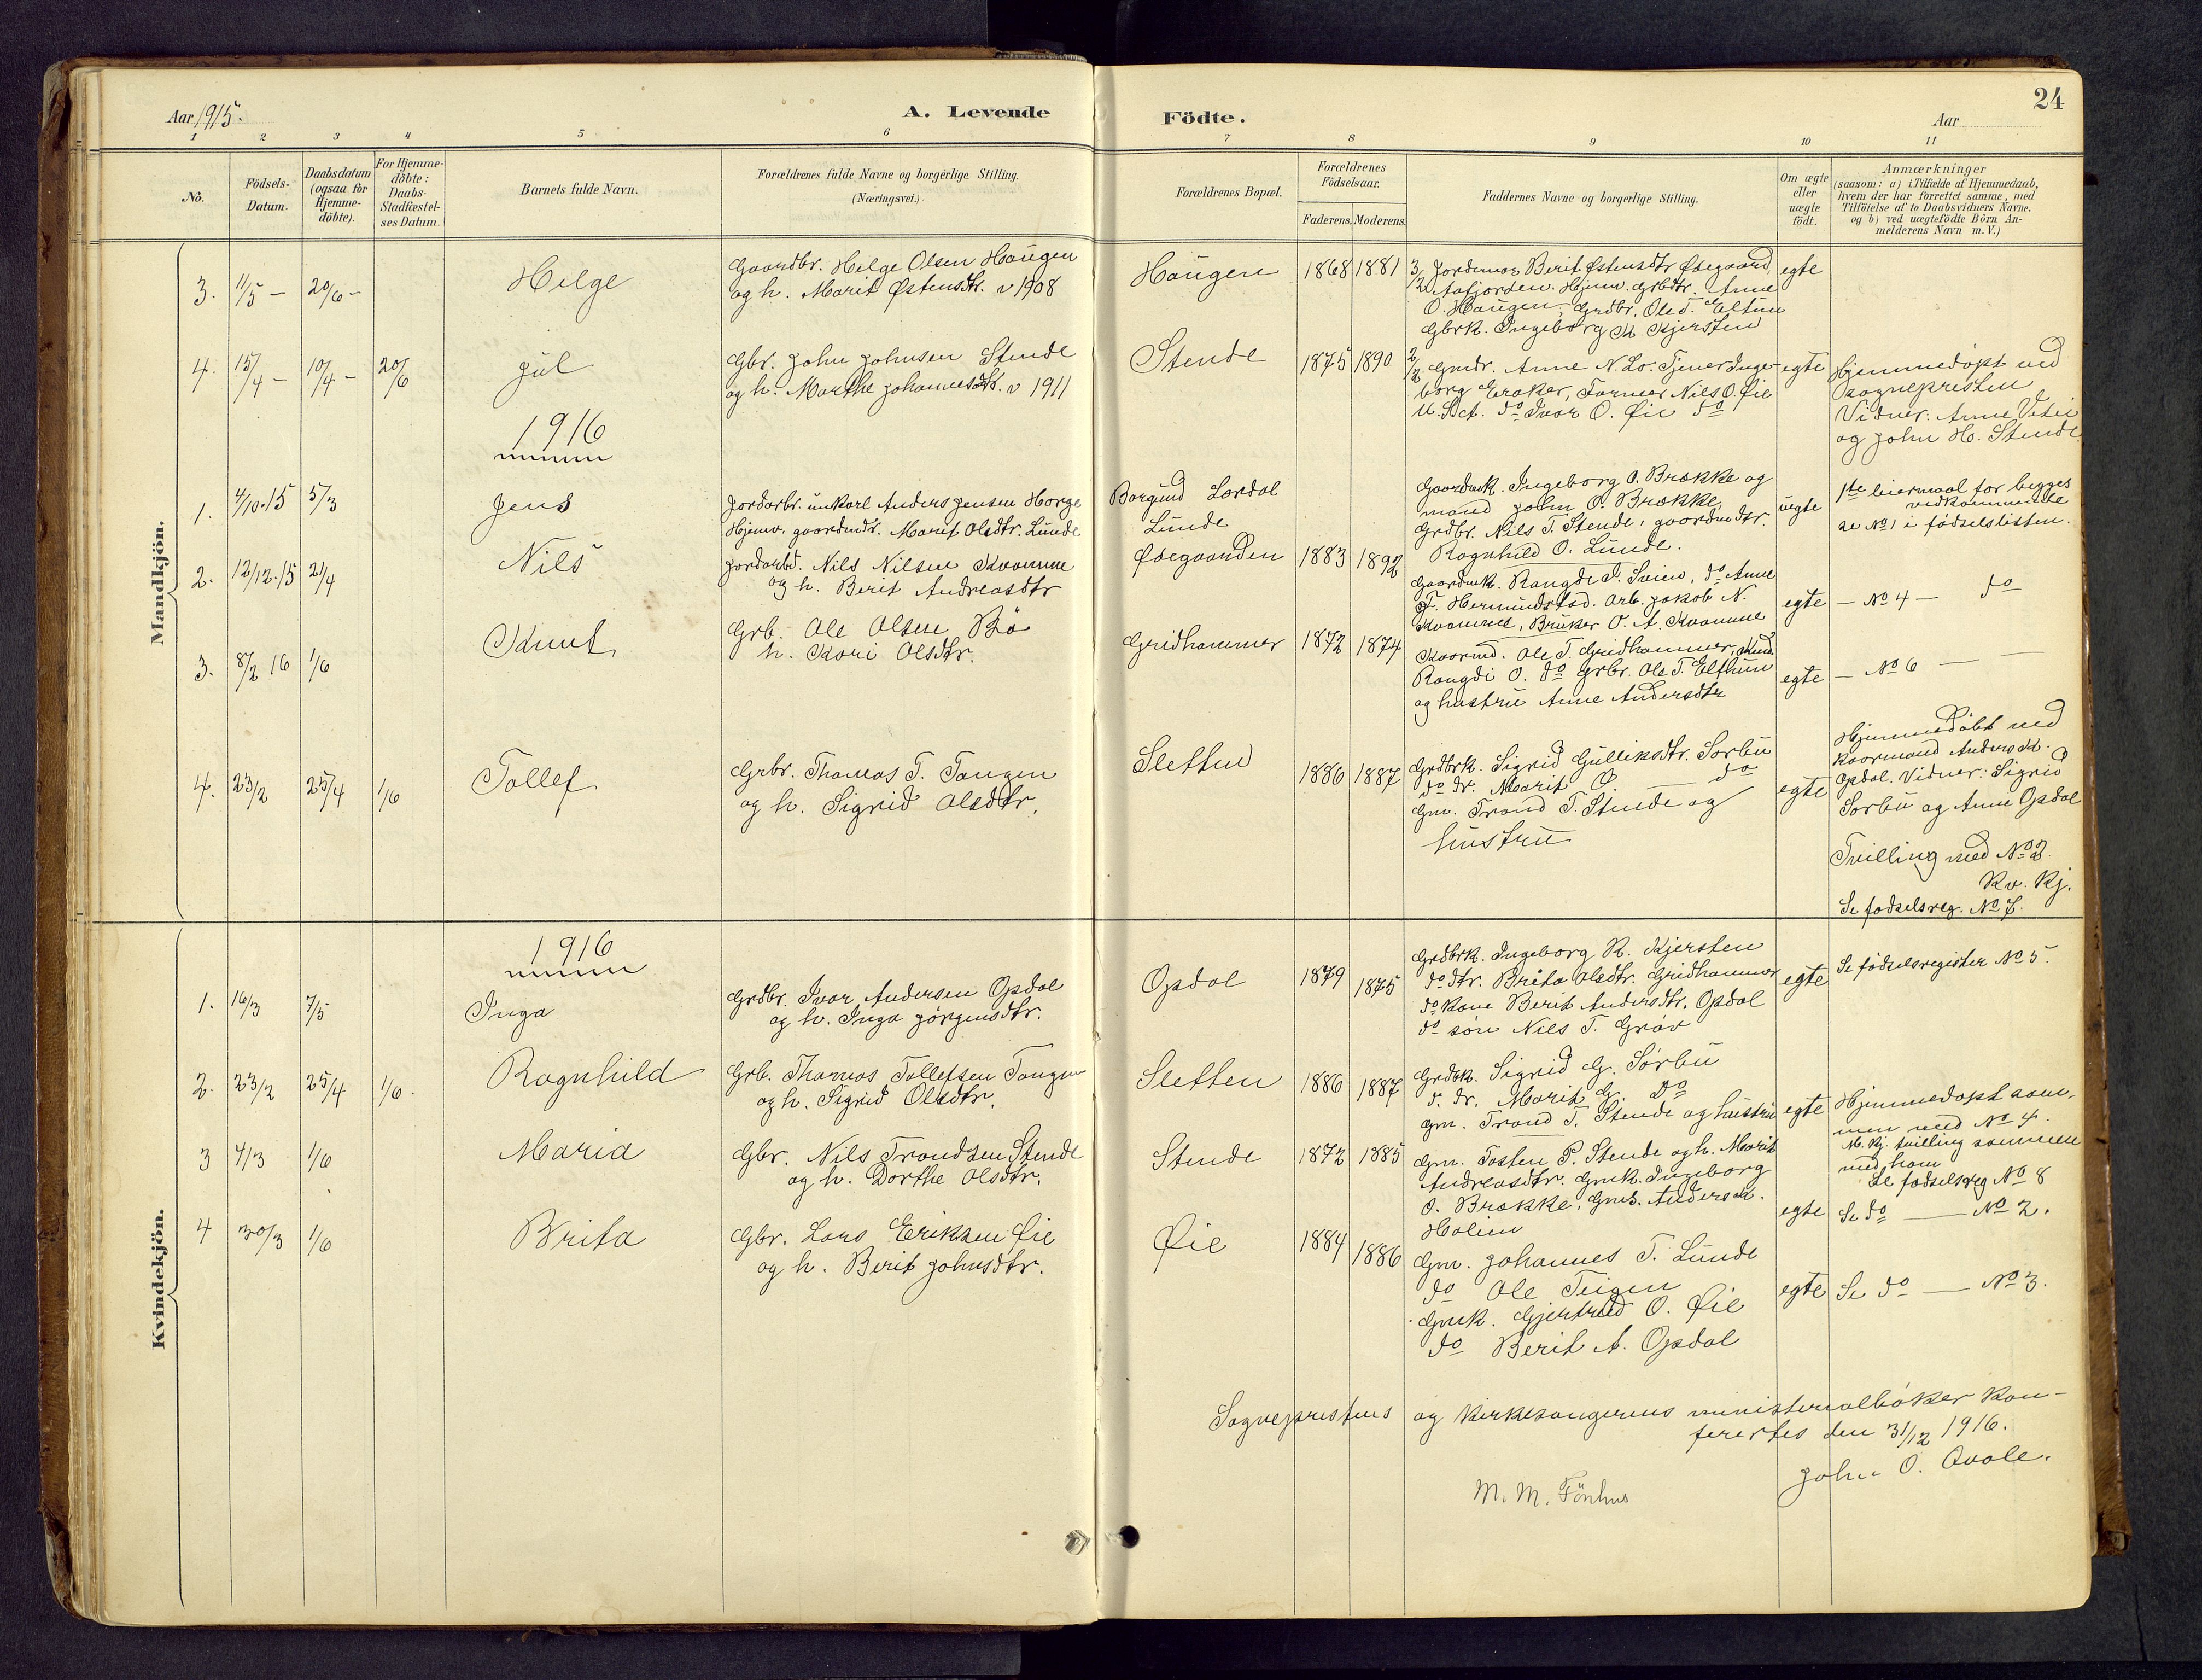 Aar 1915.
A. Levende
Födte.
Aar
24
1 2 3 4 5 6 7 8 9 10 11
No.
Födsels-Datum.
Daabsdatum (ogsaa for Hjemme-döbte).
For Hjemme-döbte: Daabs-Stadfæstel-ses Datum.
Barnets fulde Navn.
Forældrenes fulde Navne og borgerlige Stilling.
(Næringsvei.)
Forældrenes Bopæl.
Forældrenes Födselsaar.
Faderens. Moderens.
Faddernes Navne og borgerlige Stilling.
Om ægte eller uægte födt.
Anmærkninger
(saasom: a) i Tilfælde af Hjemmedaab,
hvem der har forrettet samme, med
Tilföielse af to Daabsvidners Navne,
og b) ved uægtefödte Börn An-
melderens Navn m.V.)
Mandkjön.
3. 11/5 - 20/6 - Helge
Gaardbr. Helge Olsen Haugen
og h. Marit Østensdtr. v 1908
Haugen 1868 1881
3/12 Jordemor Berit Østensdtr Ødegaard
Aafjorden. Hjemv. grbdtr. Anne
O. Haugen, Grdbr. Ole T. Eltun
Gbrk. Ingeborg K Kjersten
egte
4. 15/4 - 10/4 - 20/6 Jul
Gbr. John Johnsen Stende
og h. Marthe Johannesdtr. v 1911
Stende 1875 1890
2/2 Gmdr. Anne N. Lo. Tjener Inge-
borg Eraker, Farmer Nils O. Øie
U. Sct. do Ivar O. Øie do
egte
Hjemmedøpt ved
sognepresten
Vidner: Anne Vetie
og John H. Stende
1916
1. 4/10.15 5/3 Jens
Jordarbr. unkarl Anders Jensen Horge
Hjemv. gaardmdtr. Marit Olsdtr. Lunde
Borgund Lærdal
Lunde
Gaardmk. Ingeborg O. Brække og
mand John O. Brække,
Grdbr. Nils T. Stende, gaardmdtr.
Ragnhild O. Lunde.
uegte
1ste leiermaal for begges
vedkommende
se No 1 i fødselslisten.
2. 12/12.15 24/4 Nils
Jordarbd. Nils Nilsen Kvamme
og h. Berit Andreasdtr
Ødegaarden 1883 1892
Gaardmk. Rangdi I. Svien, do Anne
T. Hermundstad. Arb. Jakob N.
Kvamme, Bruker O. A. Kvamme
egte
- No 4 - do
3. 8/2 16 1/6 Knut
Grb. Ole Olsen Bö
h. Kari Olsdtr.
Gridhammer 1872 1874
Kaarmd. Ole T. Gridhammer, Kmd.
Rangdi O. do Grbr. Ole T. Elthun
og hustru Anne Andersdtr
egte
- No 6 - -
4. 23/2 25/4 1/6 Tollef
Grbr. Thomas T. Tangen
og h. Sigrid Olsdtr.
Sletten 1886 1887
Grdbrk. Sigrid Gulliksdtr. Sørbu
do dr. Marit G. - do
Gm. Trond T. Stende og
hustru
egte
Hjemmedöbt ved
kaarmand Anders K.
Opdal. Vidner: Sigrid
Sørbu og Anne Opdal
Tvilling med No 2.
Kv. Kj.
Se fødselsreg. No 7.
Kvindekjön.
1916
1. 16/3 7/5 Inga
Grdbr. Ivar Andersen Opdal
og h. Inga Jørgensdtr.
Opdal 1879 1875
Grdbrk. Ingeborg K. Kjersten
do dtr. Brita Olsdtr. Gridhammer
do kone Berit Andersdtr. Opdal
do sön Nils T. Gröv
egte
Se fødselsregister No 5.
2. 23/2 25/4 1/6. Ragnhild
Grb. Thomas Tollefsen Tangen
og h. Sigrid Olsdtr.
Sletten 1886 1887
Grdbk. Sigrid G. Sørbu
d. dr. Marit G. do
Gm. Trond T. Stende og hustru
egte
Hjemmedøpt sam-
men med No 4.
M. Kj. tvilling sammen
med ham
Se fødselsreg No 8
3 4/3 1/6 Maria
Gbr. Nils Trondsen Stende
og h. Dorthe Olsdtr.
Stende 1872 1885
Gm. Tosten P. Stende og h. Marit
Andreasdtr. Gmk. Ingeborg
O. Brække. Gms. Anders K.
Holien
egte
Se do - No 2.
4 30/3 1/6 Brita
Gbr. Lars Eriksen Øie
og h. Berit Johnsdtr.
Øie 1884 1886
Gm. Johannes T. Lunde
do Ole Teigen
Gmk. Gjertrud O. Øie
do Berit A. Opdal
egte
Se do - No 3.
Sogneprestens og kirkesangerens ministerialbøker kon-
fererstes den 31/12 1916.
M. M. Fönhus
John O. Qvale.